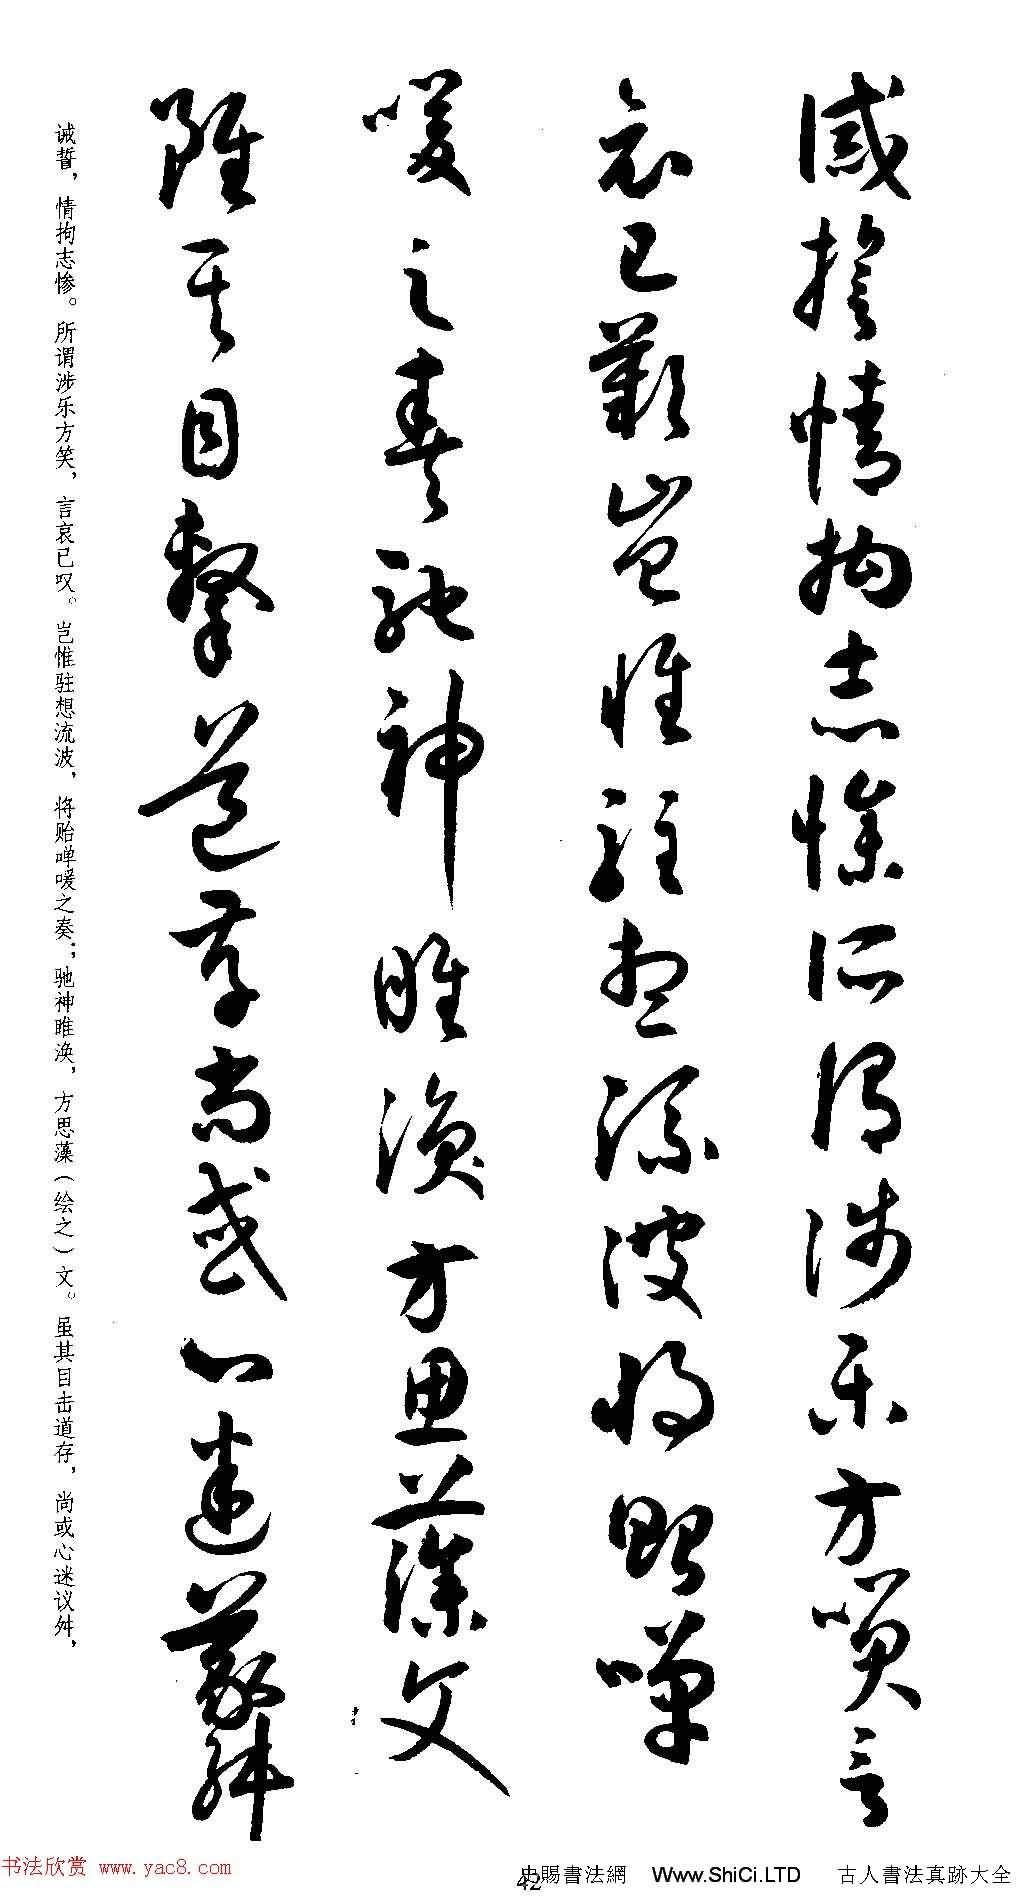 誡誓情拘志慘所謂涉樂方笑言
哀已歎豈惟駐想流波將貽嘽
喛之奏馳神睢渙方思藻文
雖其目擊道存尚或心迷議舛
诫誓，情拘志惨。所谓涉乐方笑，言哀已叹。岂惟驻想流波，将贻啴喛之奏；驰神睢涣，方思藻（绘之）文。虽其目击道存，尚或心迷议舛，
书法欣赏 www.yac8.com
42
賜書法網 Www.ShiCi.LTD 古人書法真跡大全